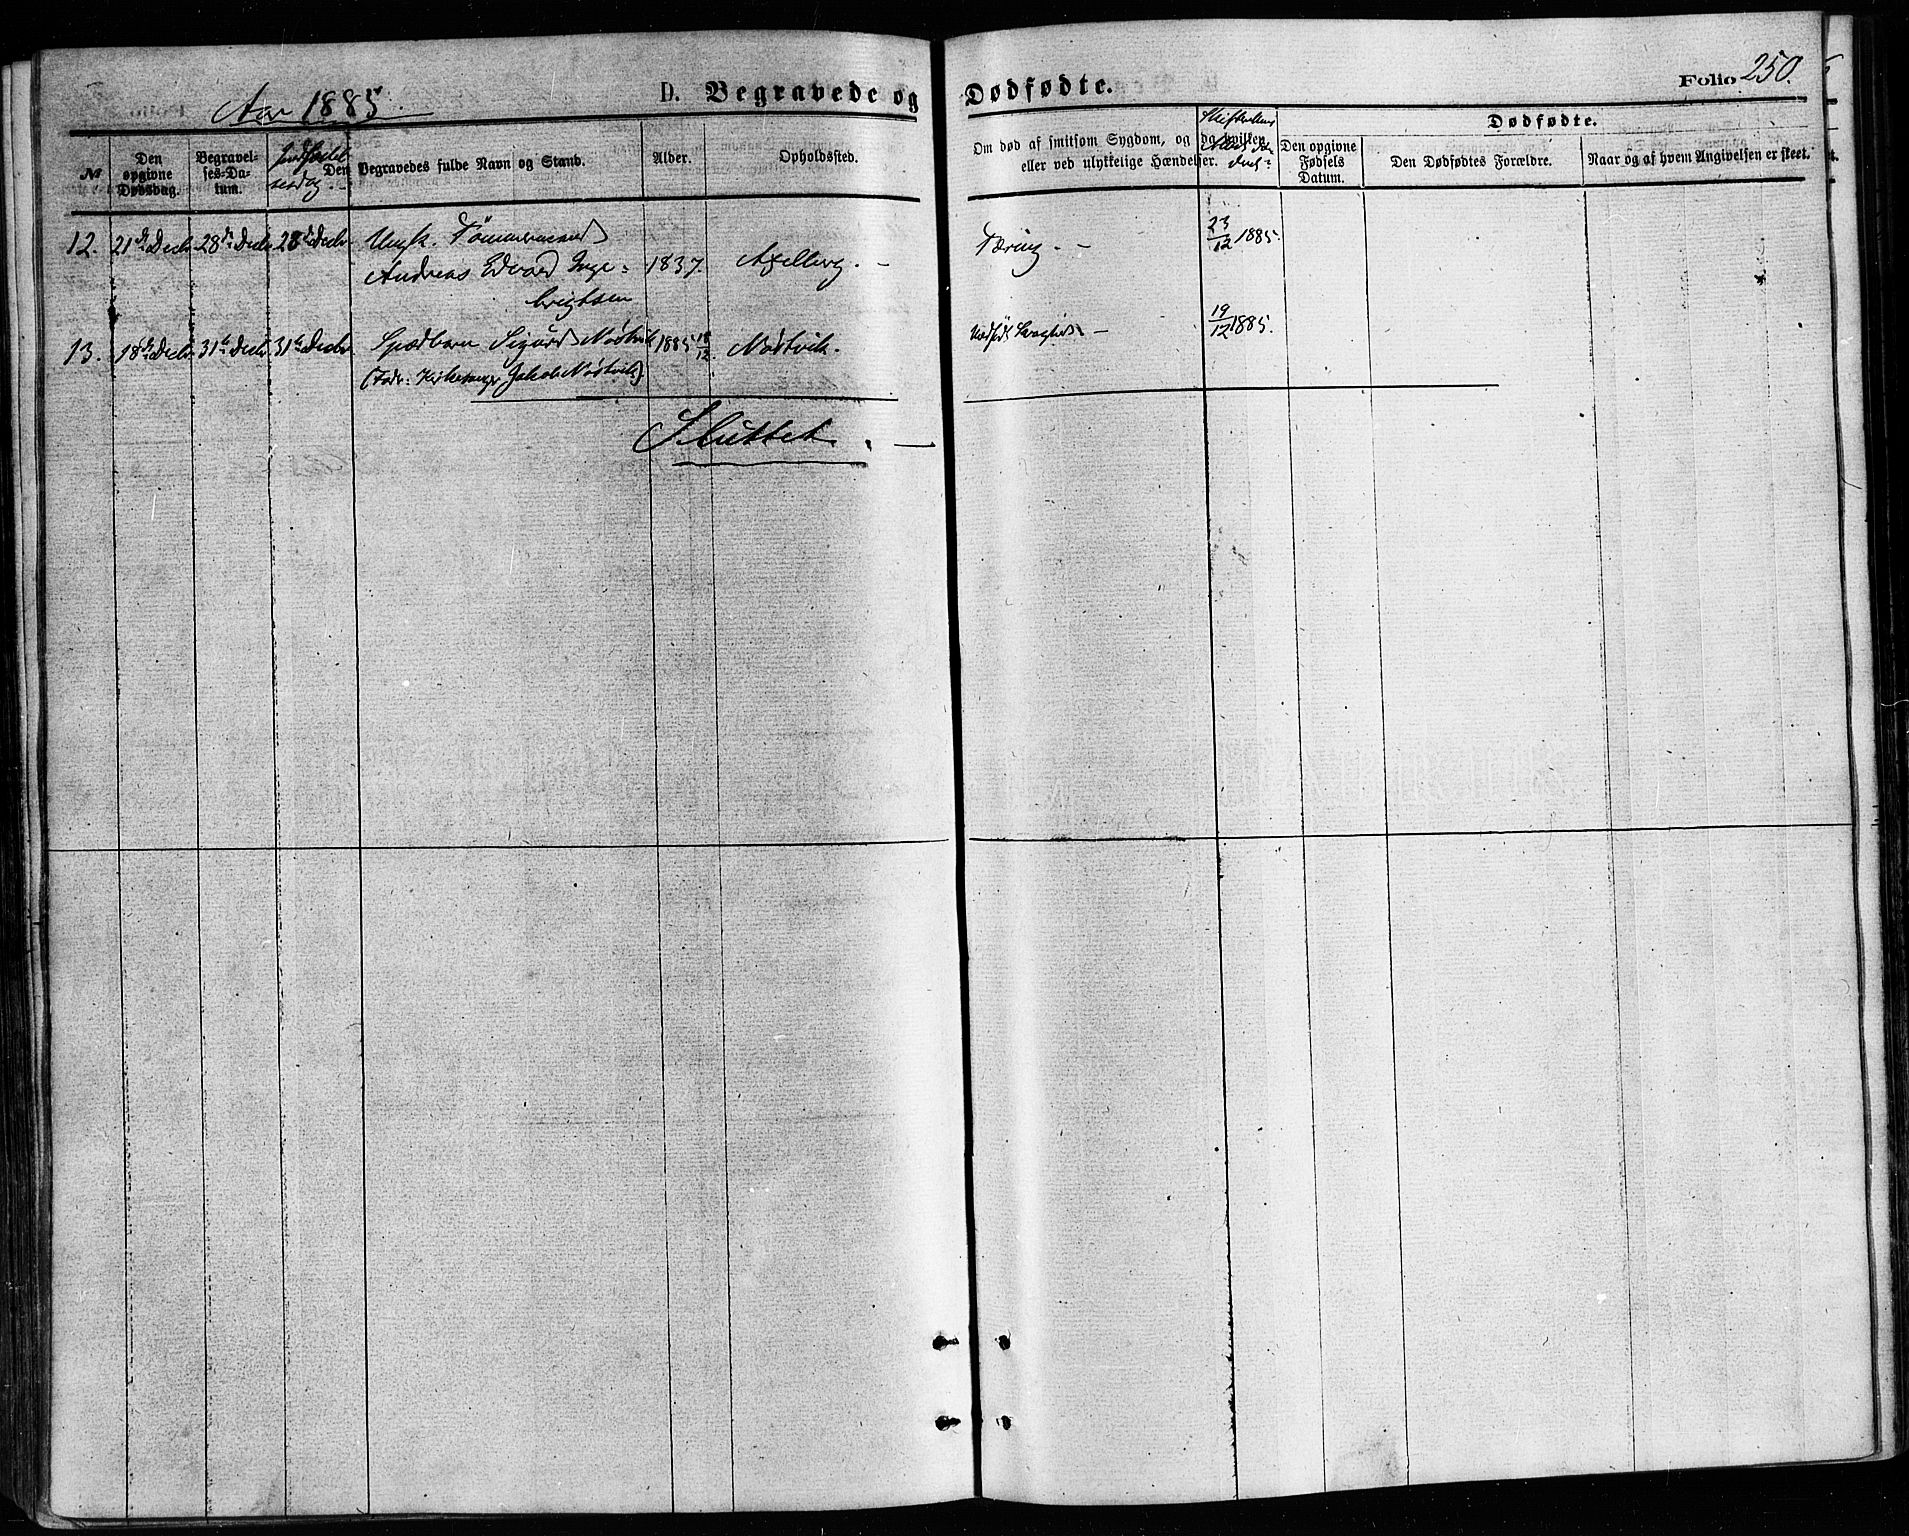 Aar 1885.
D. Begravede og Dødfødte.
Folio 250.
№
Den opgivne Dødsdag.
Begravelses-Datum.
Jordfæstelsesdag.
Den
Begravedes fulde Navn og Stand.
Alder.
Opholdssted.
Om død af smitsom Sygdom, og da hvilken,
eller ved ulykkelige Hændelser.
Dødfødte.
Den opgivne Fødsels Datum.
Den Dødfødtes Forældre.
Naar og af hvem Angivelsen er skeet.
12. 21de Decbr 28de Decbr 28de Decbr Ungk. Tømmermand 23/12 1885.
Andreas Edvard Inge- 1837. Axelberg. – Tæring. –
brigtsen
13. 18de Decbr 31te Decbr 31te Decbr Spædbarn Sigurd Nøstvik 1885 18/12. Nøstvik. Medfødt Svaghed. – 19/12 1885.
(Fader: Kirkesanger Jakob Nøstvik)
Sluttet. –